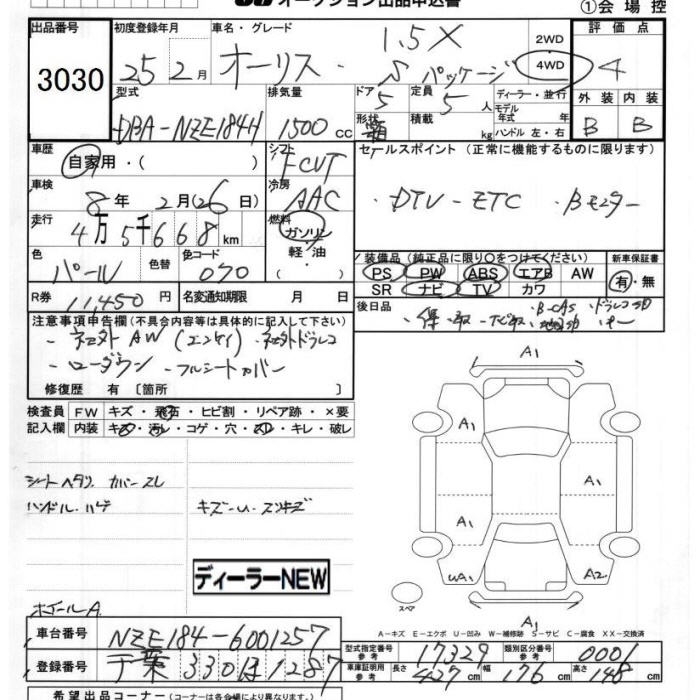 オークション出品申込書
①会場控
出品番号 初度登録年月 車名・グレード 評価点
3030 25年 2月 オーリス・ 1.5X Sパッケージ 2WD 4WD 4
型式 排気量 ドア 定員 ディーラー・並行 外装 内装
DBA-NZE184H 1500cc 5 5人 モデル年式 年 B B
形状 箱 積載 kg ハンドル 左・右
車歴 自家用・( ) シフト FCVT セールスポイント (正常に機能するものに限ります)
車検 8年 2月(26日) 冷房 AAC ・DTV-ETC ・Bモニター
走行 4万5千668km 燃料 ガソリン 軽油・( )
色 パール 色替 色コード 070
装備品 (純正品に限り○をつけてください) 新車保証書
PS PW ABS エアB AW 有・無
SR ナビ TV カワ
R券 11,450円 名変通知期限 月 日
後日品
注意事項申告欄 (不具合内容等は具体的に記入して下さい)
・ローダウン ・フルシートカバー
修復歴 有 〔箇所 〕
検査員 FW キズ・飛石・ヒビ割・リペア跡・×要
記入欄 内装 キズ・汚レ・コゲ・穴・スレ・キレ・破レ
シートヘタリ カバースレ
ハンドルハゲ
A1
A1
A1
A1
A1
A2
A1
スペア
ディーラーNEW
ホイールA
A-キズ E-エクボ U-凹み W-補修跡 S-サビ C-腐食 XX-交換済
車台番号 NZE184-6001257 型式指定番号 参考 17329 類別区分番号 参考 0001
登録番号 千葉330ほ1287 車庫証明用 参考 長さ 427cm 幅 176cm 高さ 148cm
希望出品コーナー (コーナーは各会場で異なります。)